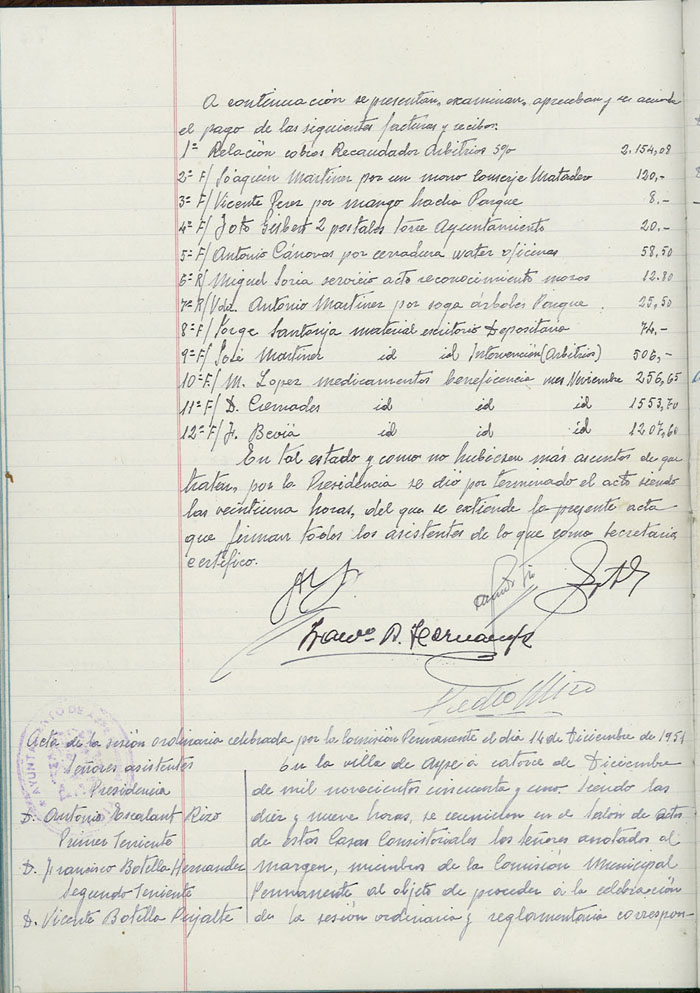 A continuación se presentan, examinan, aprueban y se acuerda
el pago de las siguientes facturas y recibos:
1ª Relación cobros Recaudador Arbitrios 5% 2.154,08
2ª F/ Joaquín Martinez por un mono Conserje Matadero 120,-
3ª F/ Vicente Perez por mango hacha Parque 8,-
4ª F/ Foto Gisbert 2 postales torre Ayuntamiento 20,-
5ª F/ Antonio Cánovas por cerradura water oficinas 58,50
6ª R/ Miguel Soria servicio acto reconocimiento mozos 12.80
7ª R/ Vda. Antonio Martinez por soga árboles Parque 25,50
8ª F/ Jorge Santonja material escritorio Depositaria 74,-
9ª F/ José Martinez id id Intervención (Arbitrios) 506,-
10ª F/ M. Lopez medicamentos beneficencia mes Noviembre 256,65
11ª F/ D. Cremades id id id 1553,70
12ª F/ J. Beviá id id id 1207,60
En tal estado y como no hubiesen más asuntos de que
tratar, por la Presidencia se dió por terminado el acto siendo
las veintiuna horas, del que se extiende la presente acta
que firman todos los asistentes de lo que como secretario
certifico.
Franco B. Hernandez
Pedro Mizo
AYUNTAMIENTO DE ASPE
Acta de la sesión ordinaria celebrada por la Comisión Permanente el dia 14 de Diciembre de 1951
Señores asistentes
Presidencia
D. Antonio Escalant Rizo
Primer Teniente
D. Francisco Botella Hernandez
Segundo Teniente
D. Vicente Botella Pujalte
En la villa de Aspe a catorce de Diciembre
de mil novecientos cincuenta y uno siendo las
diez y nueve horas, se reunieron en el Salón de actos
de estas Casas Consistoriales los señores anotados al
margen, miembros de la Comisión Municipal
Permanente al objeto de proceder á la celebración
de la sesión ordinaria y reglamentaria correspon-